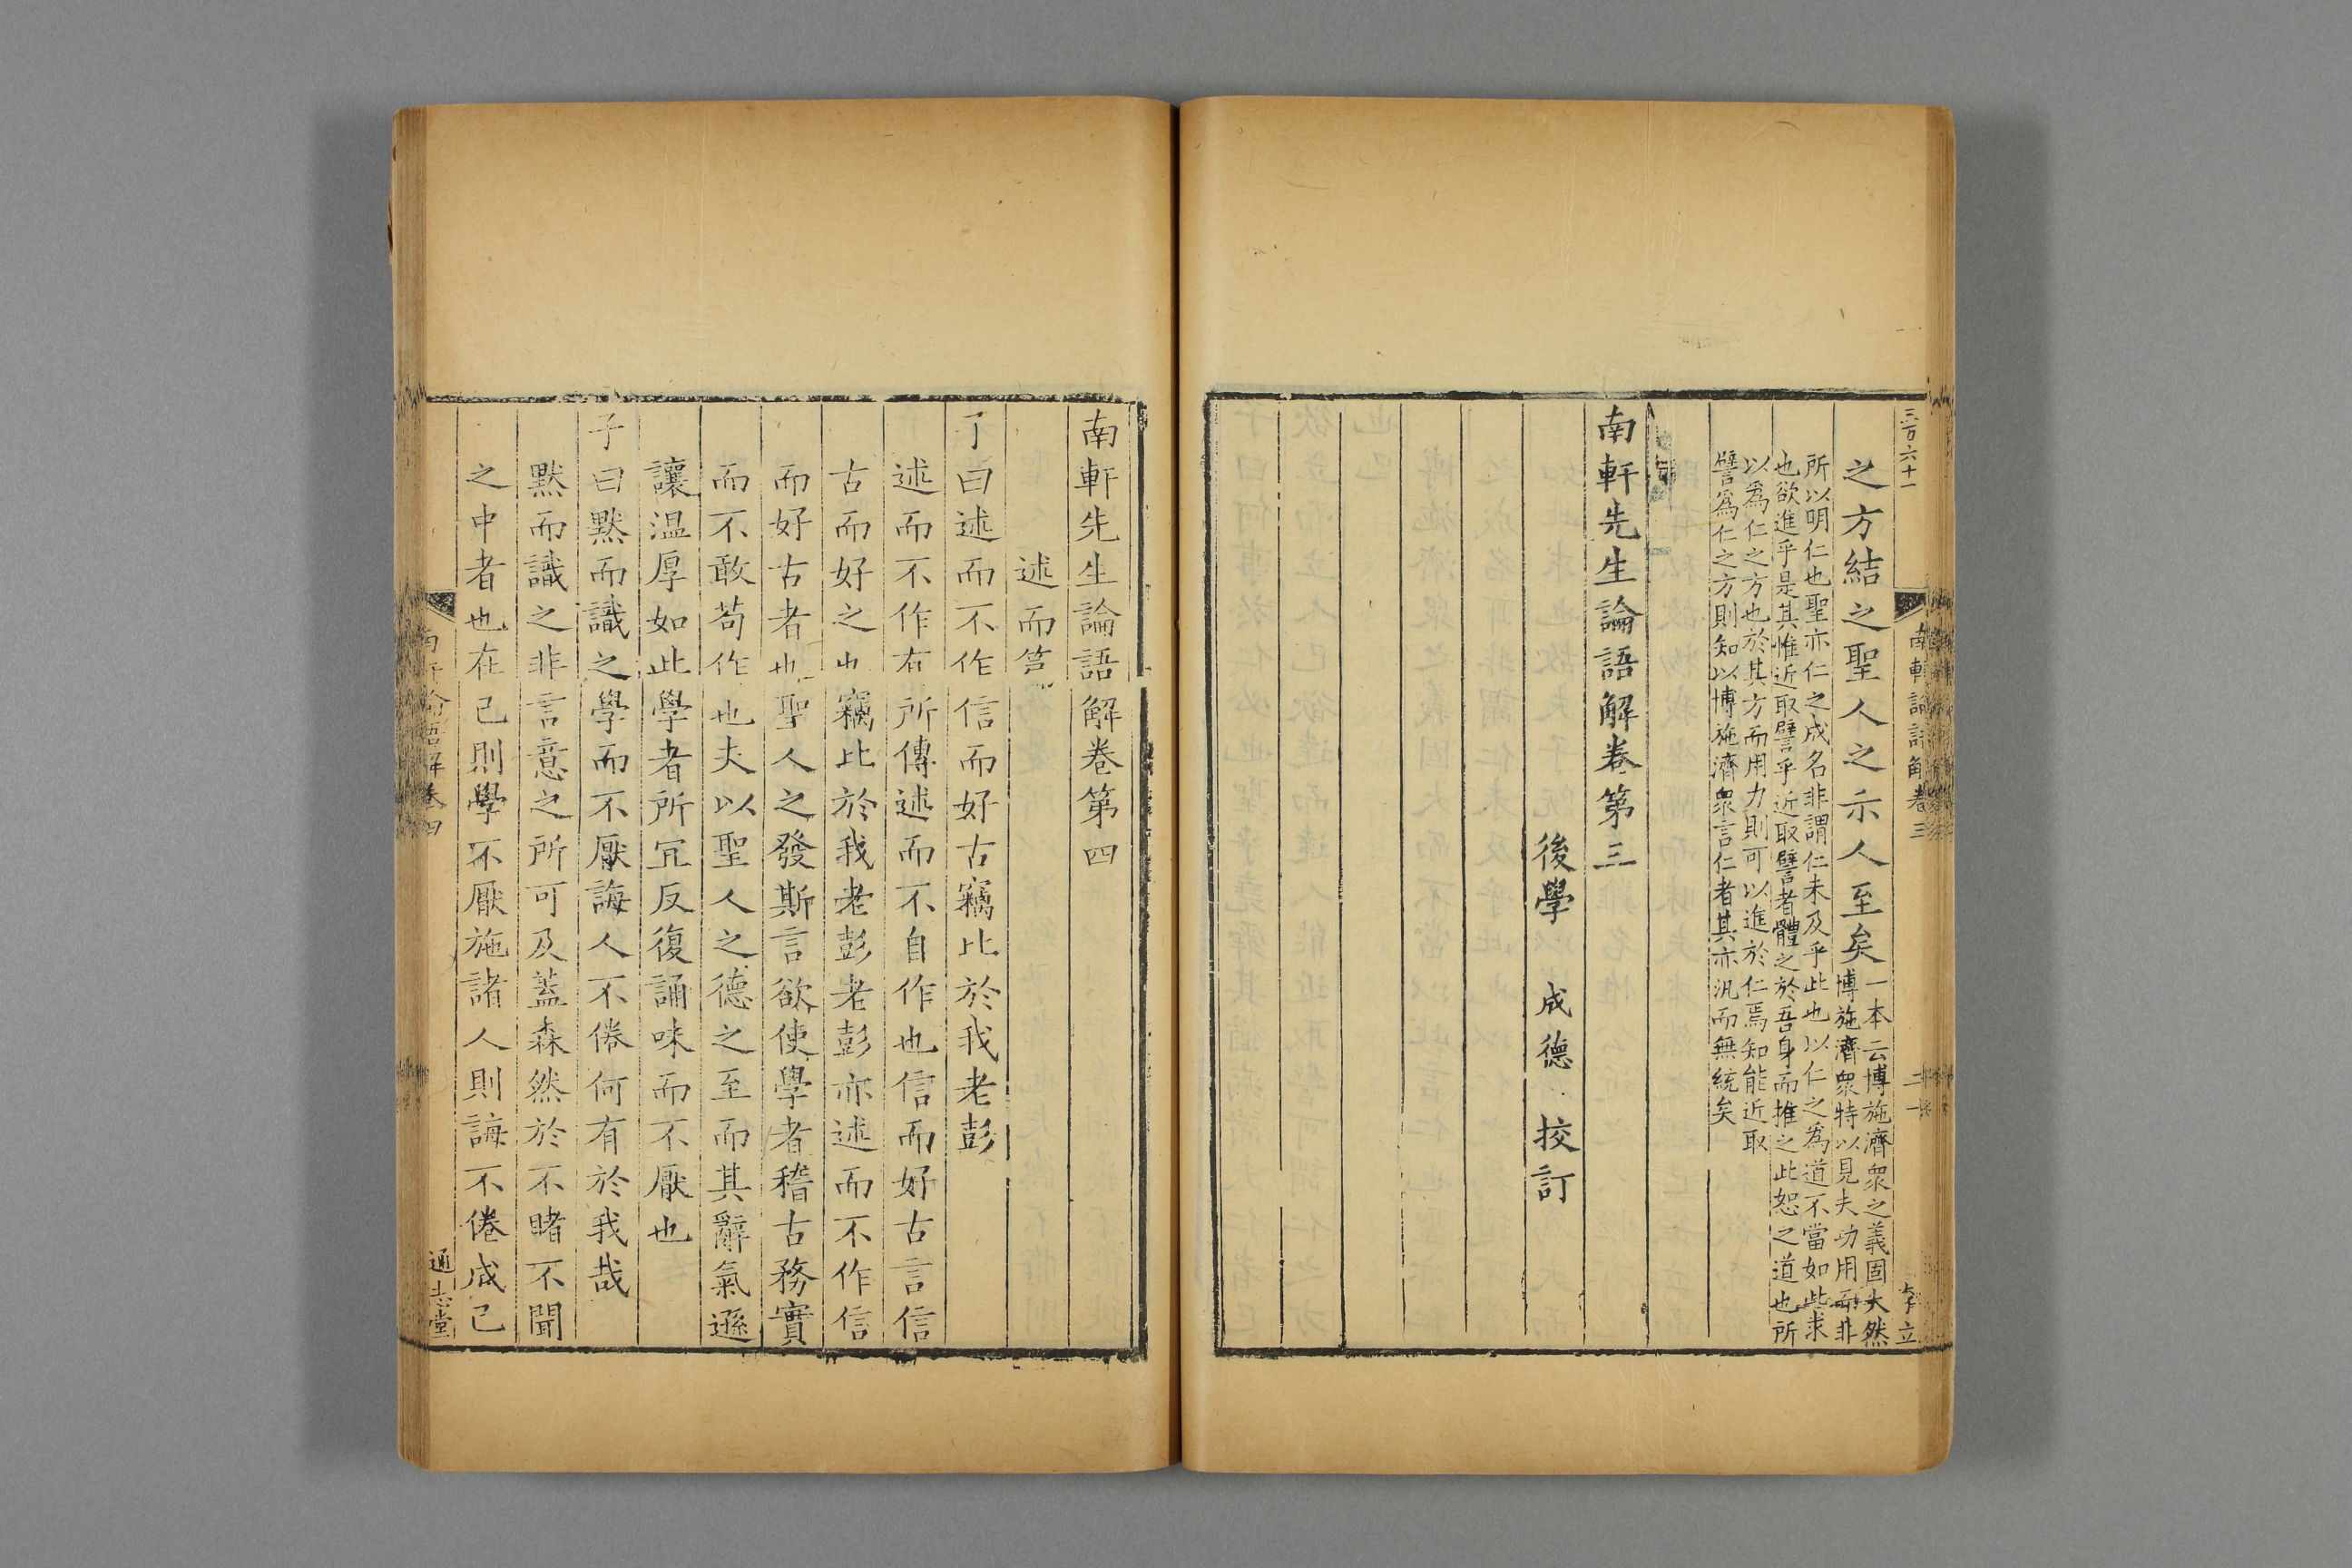 三百六十一
南軒論語解卷三
二十一
李立
之方結之聖人之示人至矣一本云博施濟衆之義固大然
博施濟衆特以見夫功用而非
所以明仁也聖亦仁之成名非謂仁未及乎此也以仁之爲道不當如此求
也欲進乎是其惟近取譬乎近取譬者體之於吾身而推之此恕之道也所
以爲仁之方也於其方而用力則可以進於仁焉知能近取
譬爲仁之方則知以博施濟衆言仁者其亦汎而無統矣
南軒先生論語解卷第三
後學 成德 挍訂
南軒先生論語解卷第四
述而篇
子曰述而不作信而好古竊比於我老彭
述而不作有所傳述而不自作也信而好古言信
古而好之也竊比於我老彭老彭亦述而不作信
而好古者也聖人之發斯言欲使學者稽古務實
而不敢苟作也夫以聖人之德之至而其辭氣遜
讓温厚如此學者所宜反復誦味而不厭也
子曰黙而識之學而不厭誨人不倦何有於我哉
黙而識之非言意之所可及蓋森然於不睹不聞
之中者也在己則學不厭施諸人則誨不倦成己
南軒論語解卷四
通志堂